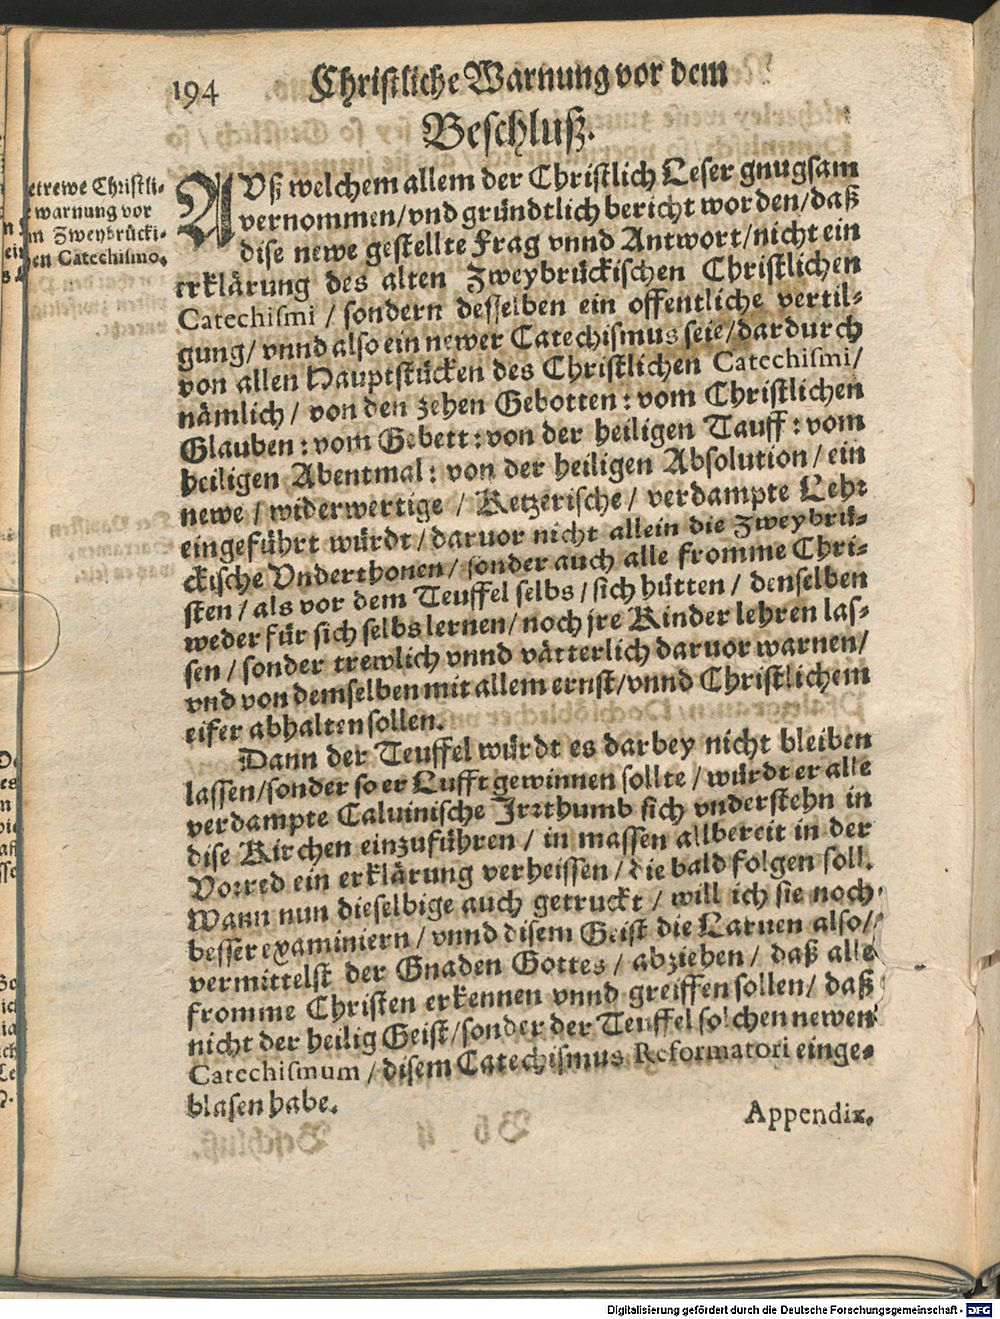 194
Christliche Warnung vor dem
Beschluß.
etrewe Christli-
warnung vor
Zweybrücki-
en Catechismo.
AVß welchem allem der Christlich Leser gnugsam
vernommen/vnd gründtlich bericht worden/daß
dise newe gestellte Frag vnnd Antwort/nicht ein
erklärung des alten Zweybrückischen Christlichen
Catechismi / sondern desselben ein offentliche vertil-
gung/ vnnd also ein newer Catechismus seie/dardurch
von allen Hauptstücken des Christlichen Catechismi/
nämlich / von den zehen Gebotten: vom Christlichen
Glauben: vom Gebett: von der heiligen Tauff: vom
heiligen Abentmal: von der heiligen Absolution / ein
newe / widerwertige / Ketzerische / verdampte Lehr
eingeführt würdt / daruor nicht allein die Zweybrü-
ckische Vnderthonen / sonder auch alle fromme Chri-
sten / als vor dem Teuffel selbs / sich hütten / denselben
weder für sich selbs lernen/ noch jre Kinder lehren las-
sen / sonder trewlich vnnd vätterlich daruor warnen/
vnd von demselben mit allem ernst/vnnd Christlichem
eifer abhalten sollen.
Dann der Teuffel würdt es darbey nicht bleiben
lassen/sonder so er Lufft gewinnen sollte / würdt er alle
verdampte Caluinische Irrthumb sich vnderstehn in
dise Kirchen einzuführen / in massen allbereit in der
Vorred ein erklärung verheissen / die bald folgen soll.
Wann nun dieselbige auch getruckt / will ich sie noch
besser examiniern / vnnd disem Geist die Laruen also/
vermittelst der Gnaden Gottes / abziehen / daß alle
fromme Christen erkennen vnnd greiffen sollen/ daß
nicht der heilig Geist/sonder der Teuffel solchen newen
Catechismum / disem Catechismus Reformatori einge-
blasen habe.
Appendix.
Digitalisierung gefördert durch die Deutsche Forschungsgemeinschaft - DFG